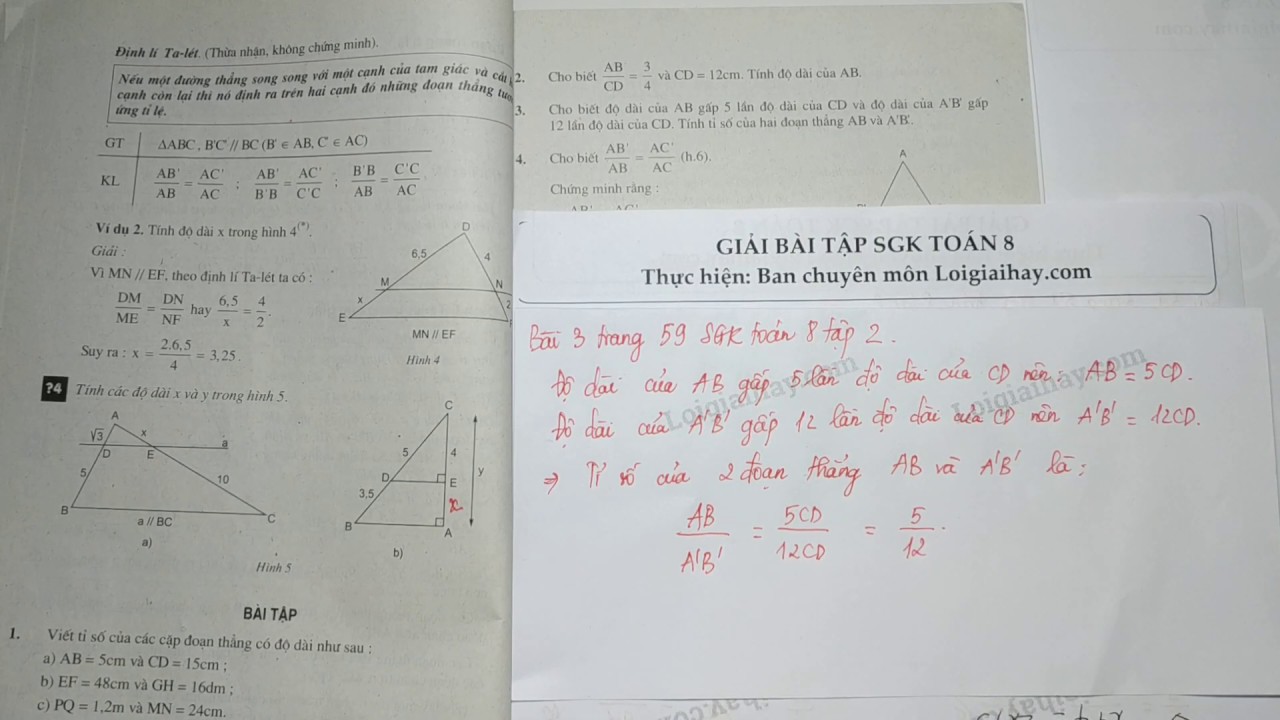 Định lí Ta-lét. (Thừa nhận, không chứng minh).
Nếu một đường thẳng song song với một cạnh của tam giác và cắt
cạnh còn lại thì nó định ra trên hai cạnh đó những đoạn thẳng
ứng tỉ lệ.
GT ΔABC , B'C' // BC (B' ∈ AB, C' ∈ AC)
KL AB'/AB = AC'/AC ; AB'/B'B = AC'/C'C ; B'B/AB = C'C/AC
Ví dụ 2. Tính độ dài x trong hình 4(*).
Giải :
Vì MN // EF, theo định lí Ta-lét ta có :
DM/ME = DN/NF hay 6,5/x = 4/2.
Suy ra : x = 2.6,5/4 = 3,25.
D
6,5
4
M
N
x
2
E
MN // EF
Hình 4
?4 Tính các độ dài x và y trong hình 5.
A
√3
x
a
D
E
5
10
B
C
a // BC
a)
C
5
4
y
D
E
3,5
x
B
A
b)
Hình 5
BÀI TẬP
1. Viết tỉ số của các cặp đoạn thẳng có độ dài như sau :
a) AB = 5cm và CD = 15cm ;
b) EF = 48cm và GH = 16dm ;
c) PQ = 1,2m và MN = 24cm.
2. Cho biết AB/CD = 3/4 và CD = 12cm. Tính độ dài của AB.
3. Cho biết độ dài của AB gấp 5 lần độ dài của CD và độ dài của A'B' gấp
12 lần độ dài của CD. Tính tỉ số của hai đoạn thẳng AB và A'B'.
4. Cho biết AB'/AB = AC'/AC (h.6).
Chứng minh rằng :
A
GIẢI BÀI TẬP SGK TOÁN 8
Thực hiện: Ban chuyên môn Loigiaihay.com
Bài 3 trang 59 SGK toán 8 tập 2.
Độ dài của AB gấp 5 lần độ dài của CD nên: AB = 5CD.
Độ dài của A'B' gấp 12 lần độ dài của CD nên A'B' = 12CD.
⇒ Tỉ số của 2 đoạn thẳng AB và A'B' là:
AB/A'B' = 5CD/12CD = 5/12.
Loigiaihay.com
Loigiaihay.com